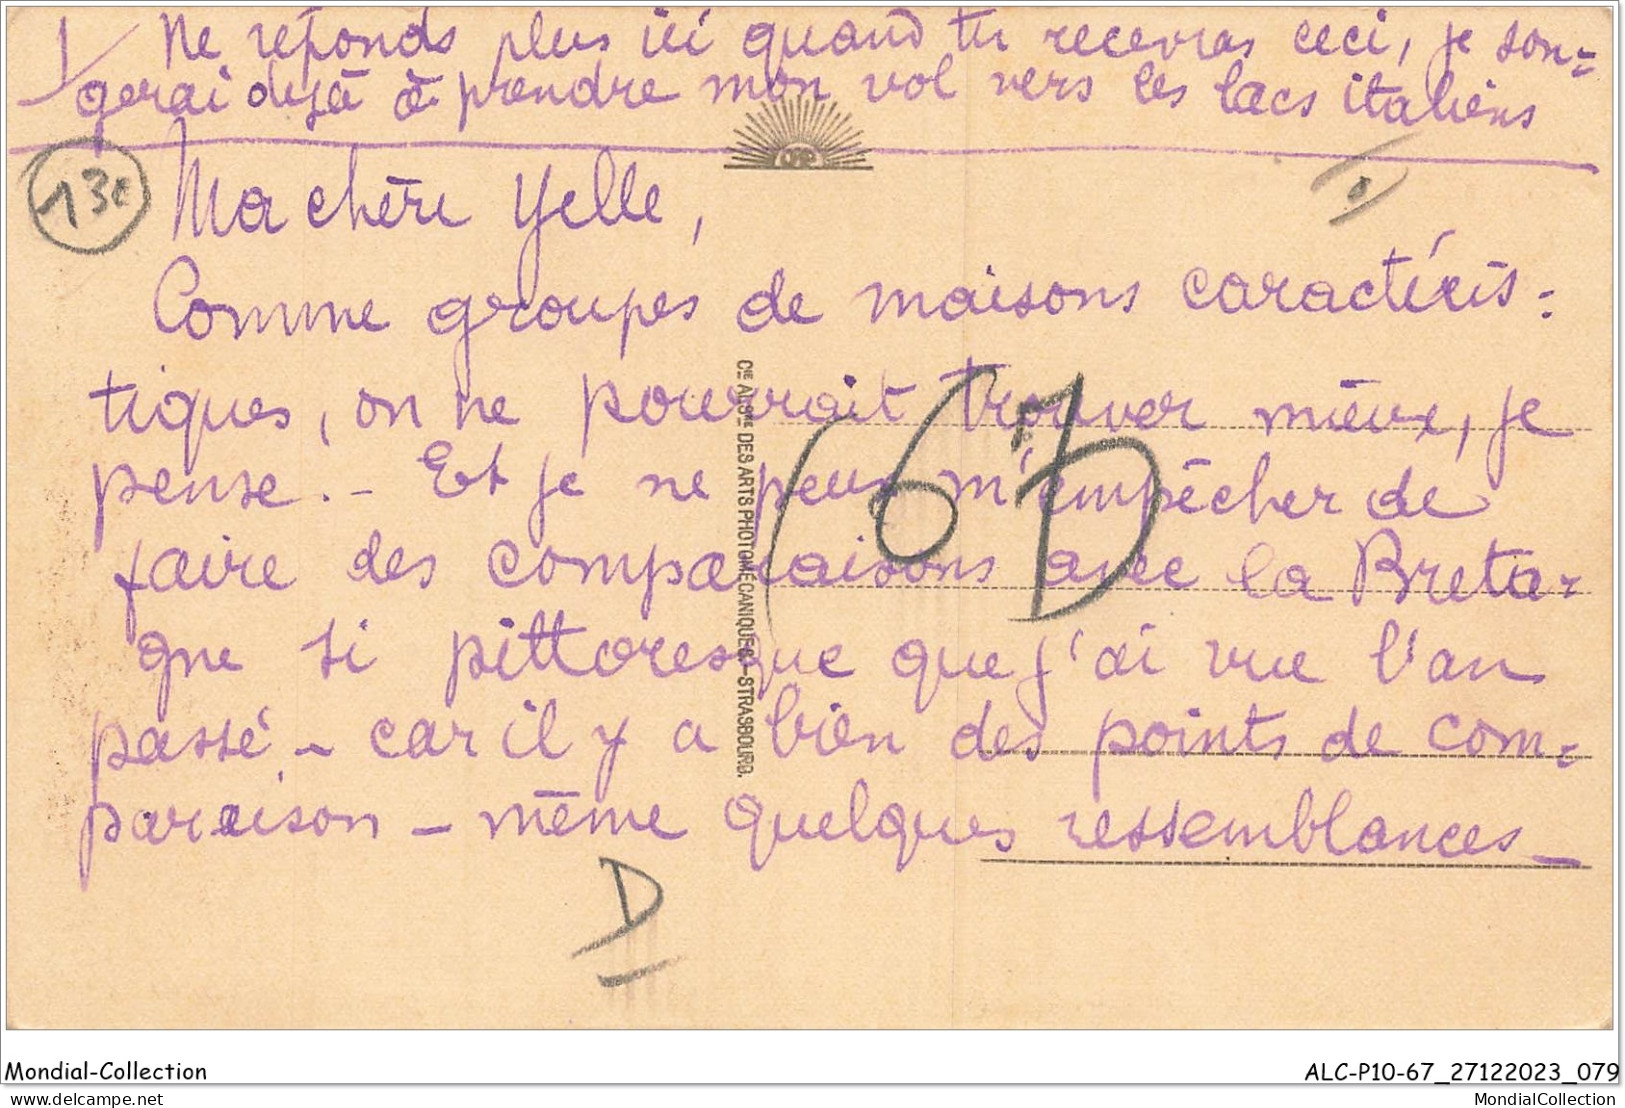 Ne réponds plus ici quand tu recevras ceci, je son=
gerai dejà à prendre mon vol vers les lacs italiens
13€
Ma chère Yelle,
Comme groupes de maisons caractéris=
tiques, on ne pourrait trouver mieux, je
pense. - Et je ne peux m'empêcher de
faire des comparaisons avec la Breta-
gne si pittoresque que j'ai vue l'an
passé - car il y a bien des points de com=
paraison - même quelques ressemblances -
67
D
CIE ALSNE DES ARTS PHOTOMÉCANIQUES - STRASBOURG.
Mondial-Collection
ALC-P10-67_27122023_079
delcampe.net
MondialCollection